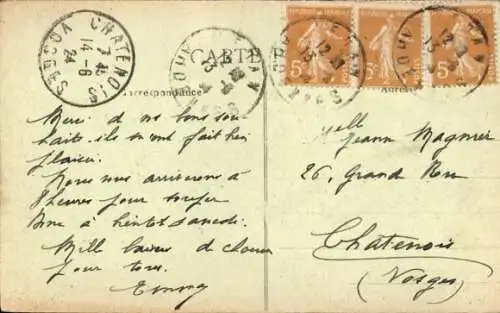 CHATENOIS
14-6
24
CARTE
Correspondance
Merci de vos bons sou-
haits ils m'ont fait bien
plaisir.
Nous nous arriverons à
8 heures pour souper
Donc à bientôt samedi.
Mille baisers de
pour tous.
5
5
5
Adresse
Mell
Jeanne Magnier
26, Grand Rue
Chatenois
(Vosges)